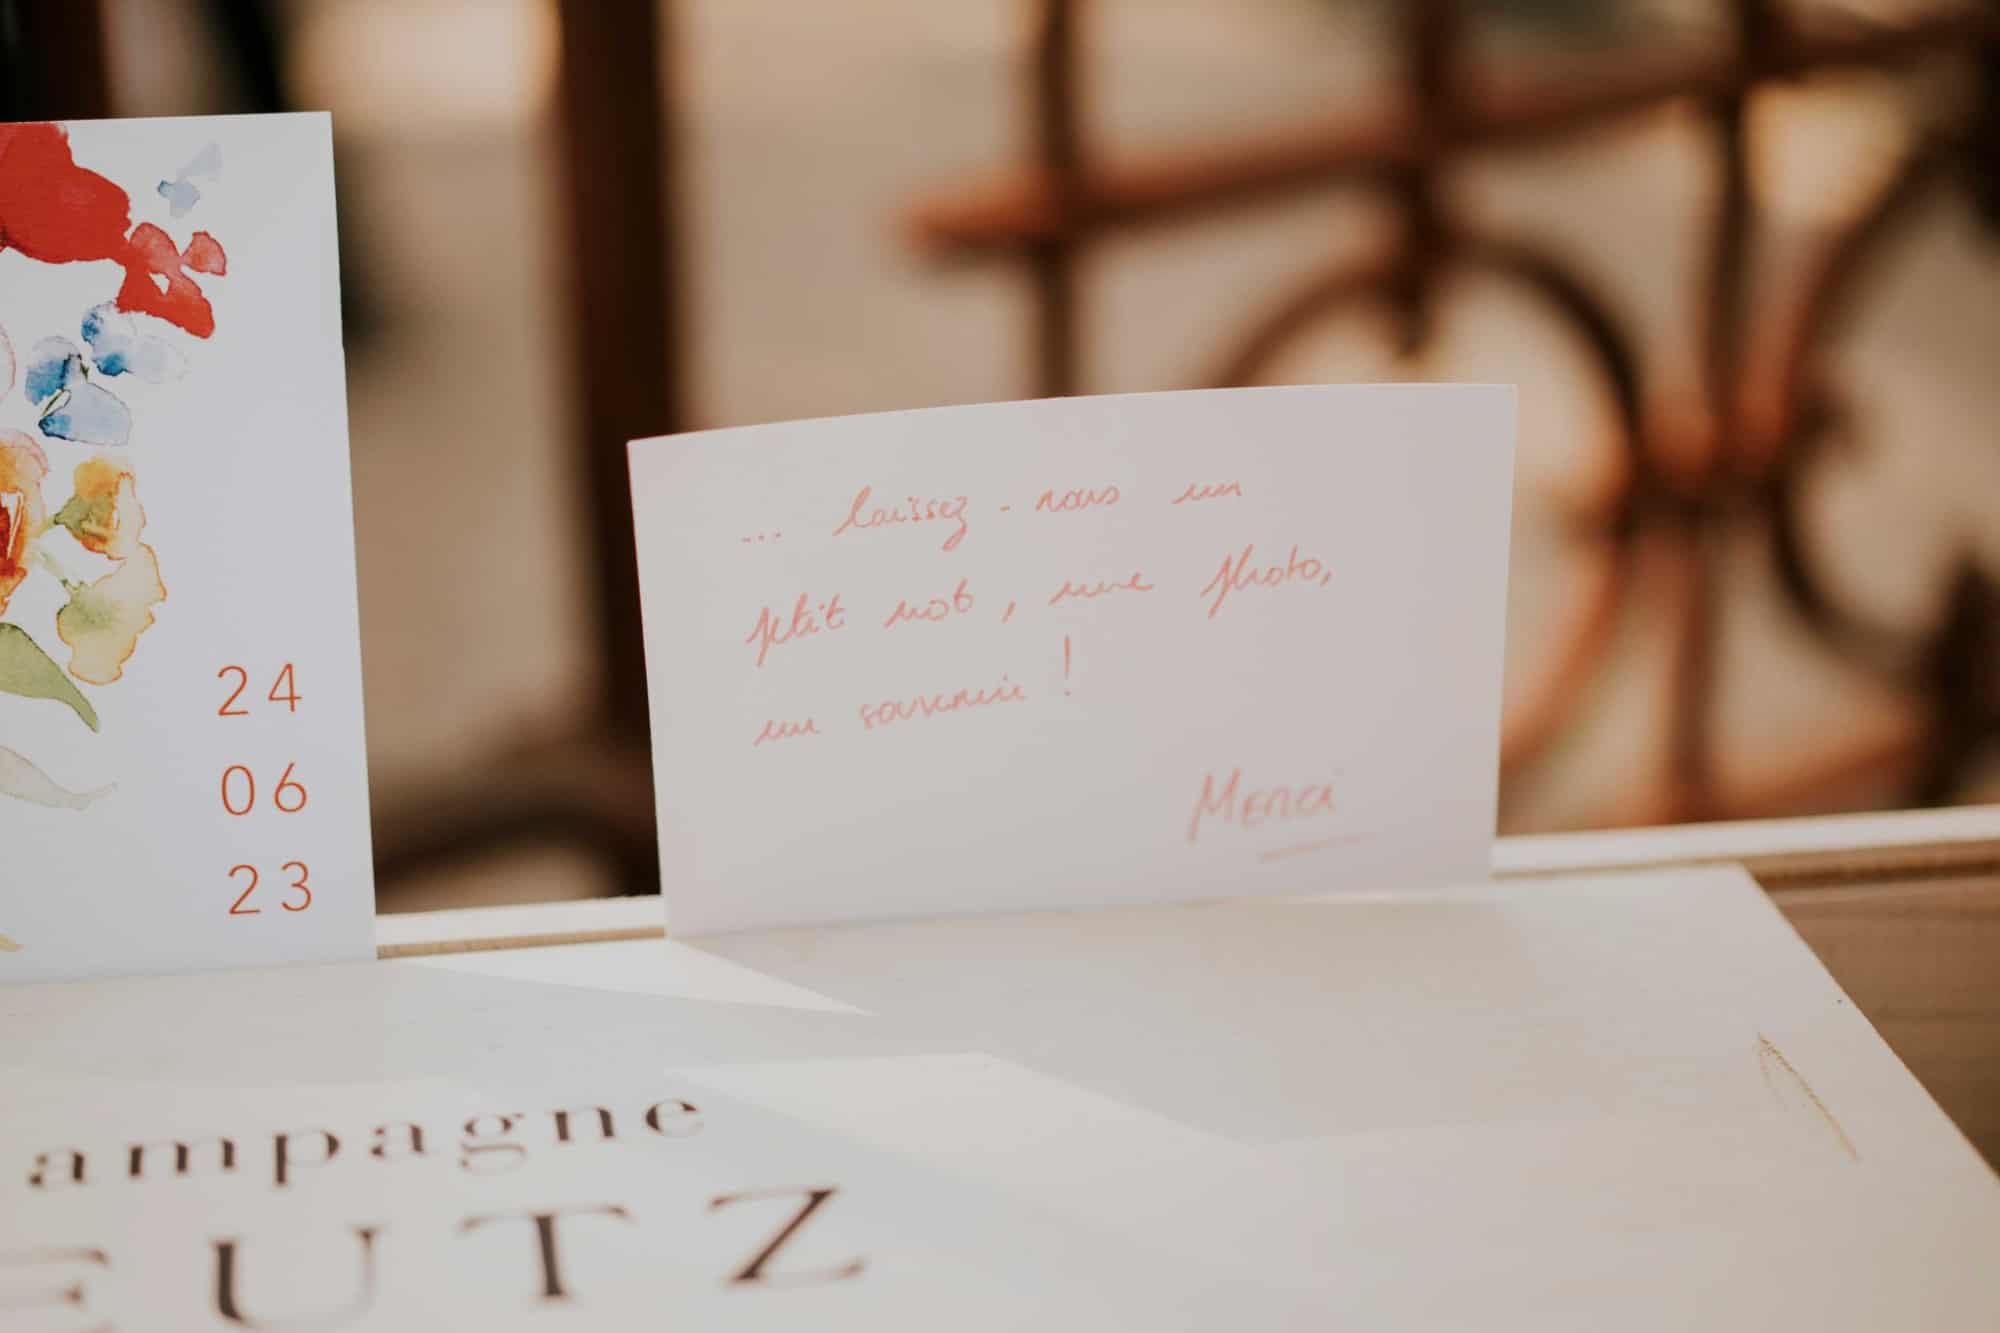 24
06
23
... laissez-nous un
petit mot, une photo,
un souvenir !
Merci
ampagne
EUTZ